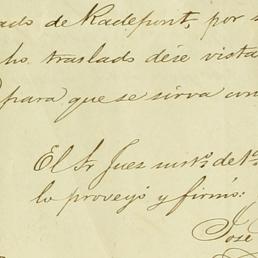 ado de Radepont, por
ho traslado dése vista
para que se sirva con
El Sr Juez
lo proveyó y firmó:
José